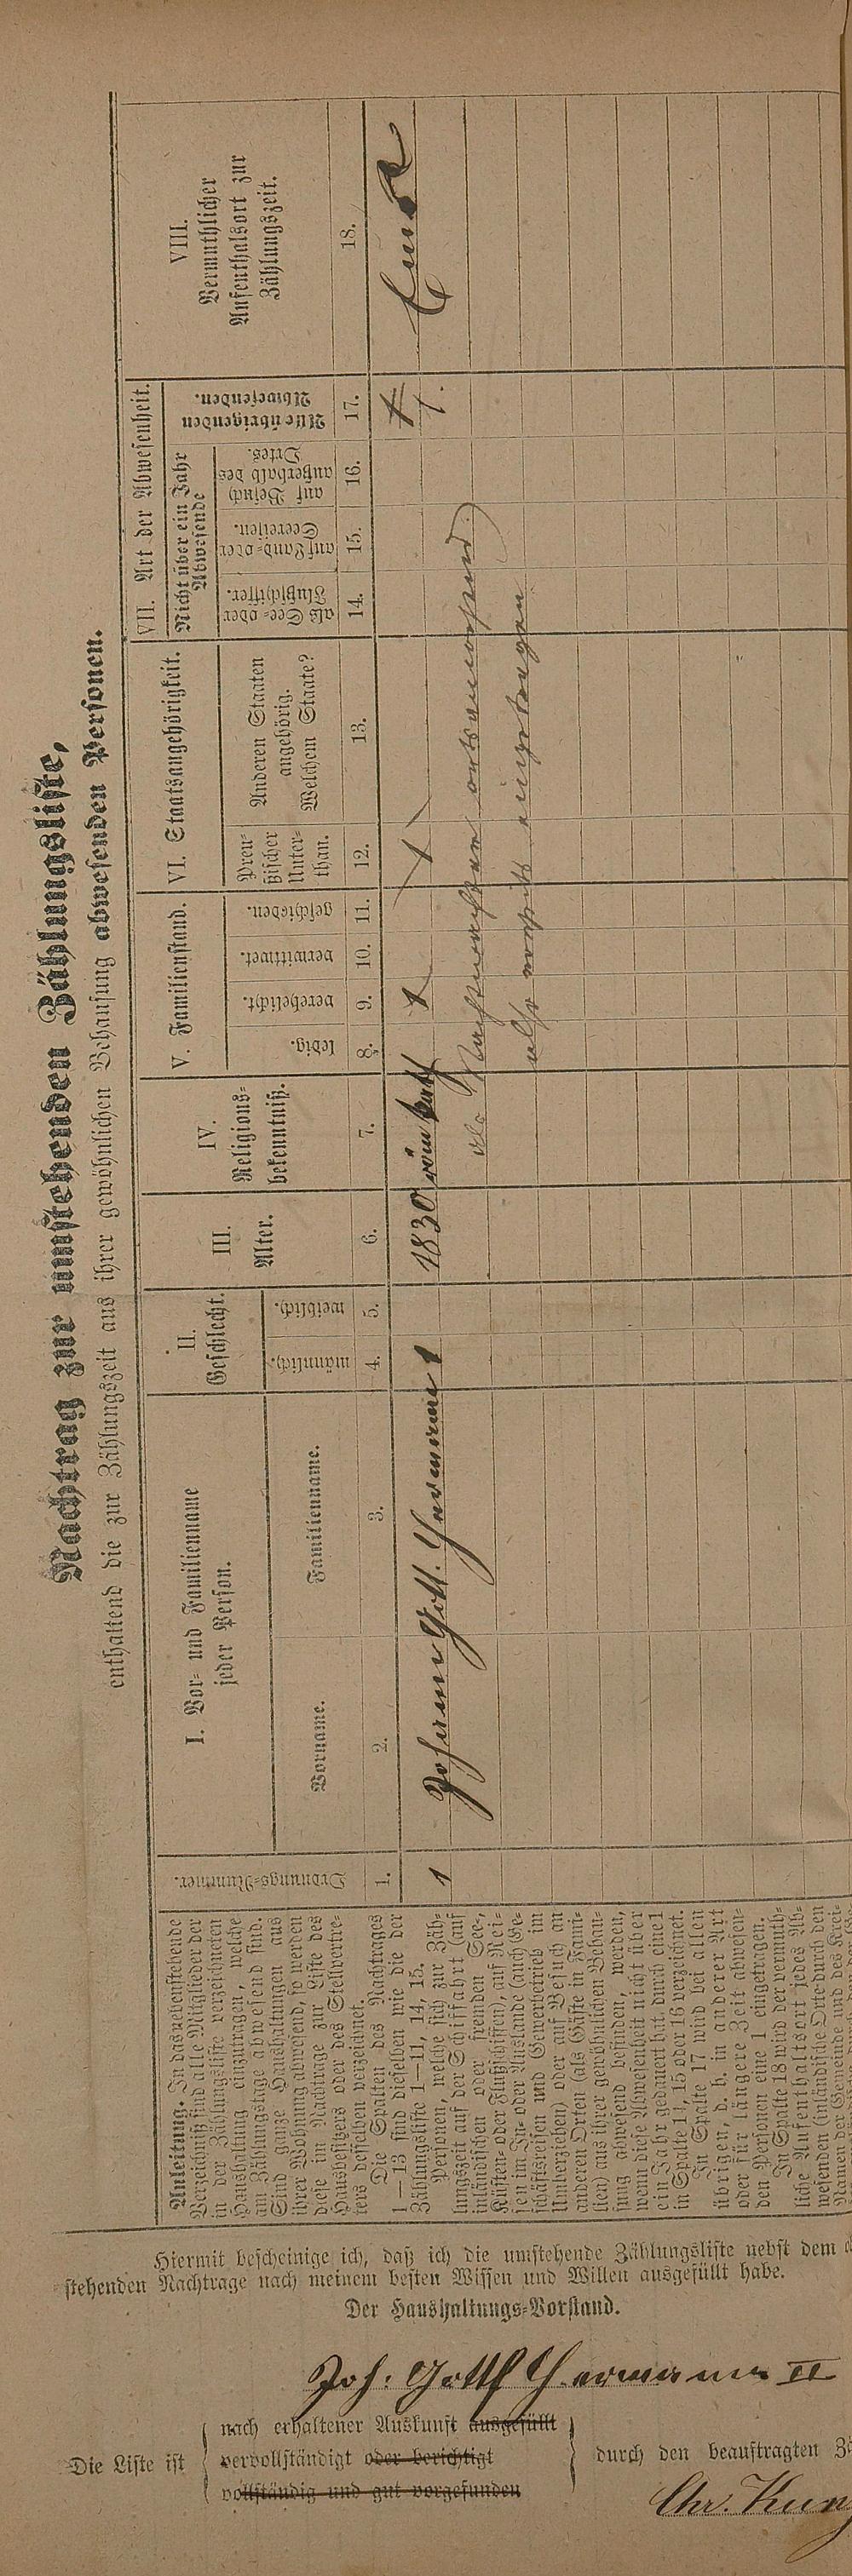 Nachtrag zur umstehenden Zählungsliste,
enthaltend die zur Zählungszeit aus ihrer gewöhnlichen Behausung abwesenden Personen.
Anleitung. In das nebenstehende
Verzeichniß sind alle Mitglieder der
in der Zählungsliste verzeichneten
Haushaltung einzutragen, welche
am Zählungstage abwesend sind.
Sind ganze Haushaltungen aus
ihrer Wohnung abwesend, so werden
diese im Nachtrage zur Liste des
Hausbesitzers oder des Stellvertre-
ters desselben verzeichnet.
Die Spalten des Nachtrages
1—13 sind dieselben wie die der
Zählungsliste 1—11, 14, 15.
Personen, welche sich zur Zäh-
lungszeit auf der Schifffahrt (auf
inländischen oder fremden See-,
Küsten- oder Flußschiffen), auf Rei-
sen im In- oder Auslande (auch Ge-
schäftsreisen und Gewerbetrieb im
Umherziehen) oder auf Besuch an
anderen Orten (als Gäste in Fami-
lien) aus ihrer gewöhnlichen Behau-
sung abwesend befinden, werden,
wenn diese Abwesenheit nicht über
ein Jahr gedauert hat, durch eine 1
in Spalte 14, 15 oder 16 verzeichnet.
In Spalte 17 wird bei allen
übrigen, d. h. in anderer Art
oder für längere Zeit abwesen-
den Personen eine 1 eingetragen.
In Spalte 18 wird der vermuth-
liche Aufenthaltsort jedes Ab-
wesenden (inländische Orte durch den
Namen der Gemeinde und des Krei-
Ordnungs-Nummer.
I. Vor- und Familienname
jeder Person.
Vorname.
Familienname.
II.
Geschlecht.
männlich.
weiblich.
III.
Alter.
IV.
Religions-
bekenntniß.
V. Familienstand.
ledig.
verehelicht.
verwittwet.
geschieden.
VI. Staatsangehörigkeit.
Preu-
ßischer
Unter-
than.
Anderen Staaten
angehörig.
Welchem Staate?
VII. Art der Abwesenheit.
Nicht über ein Jahr
Abwesende
als See- oder
Flußschiffer.
auf Land- oder
Seereisen.
auf Besuch
außerhalb des
Ortes.
Alle übrigen
Abwesenden.
VIII.
Vermuthlicher
Aufenthalsort zur
Zählungszeit.
1. 2. 3. 4. 5. 6. 7. 8. 9. 10. 11. 12. 13. 14. 15. 16. 17. 18.
1 Johann Gottf. Hermann 1 1830 röm kath 1 1 1. Ems
als Nachtwächter ortsanwesend
also jenseits eingetragen
Hiermit bescheinige ich, daß ich die umstehende Zählungsliste nebst dem
stehenden Nachtrage nach meinem besten Wissen und Willen ausgefüllt habe.
Der Haushaltungs-Vorstand.
Joh: Gottf Hermann II
Die Liste ist
nach erhaltener Auskunft ausgefüllt
vervollständigt oder berichtigt
vollständig und gut vorgefunden
durch den beauftragten
Chr. Kunz